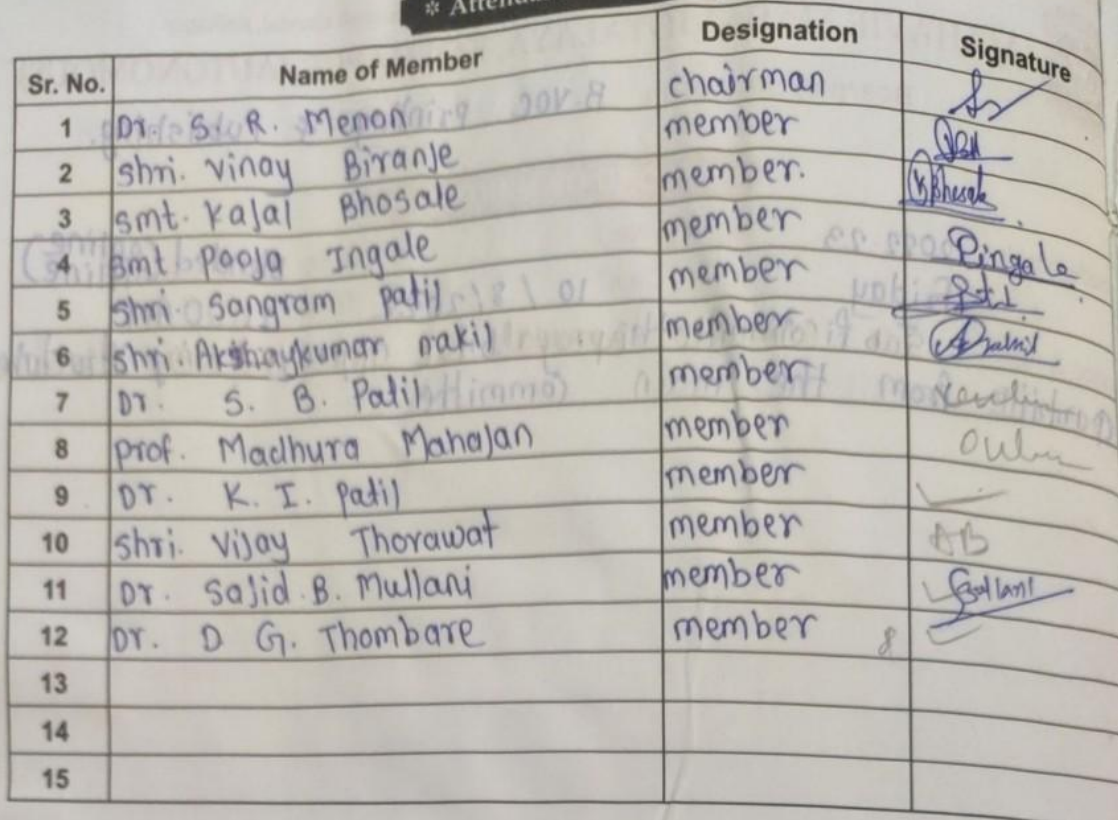 * Atten
Sr. No. Name of Member Designation Signature
1 Dr. S. R. Menon chairman
2 Shri. Vinay Biranje member
3 Smt. Kajal Bhosale member. KBhosale
4 Smt Pooja Ingale member Pingale
5 Shri. Sangram patil member
6 Shri. Akshaykumar nakil member
7 Dr. S. B. Patil member
8 prof. Madhura Mahajan member
9 Dr. K. I. Patil member
10 Shri. Vijay Thorawat member AB
11 Dr. Sajid B. Mullani member
12 Dr. D G. Thombare member 8
13
14
15